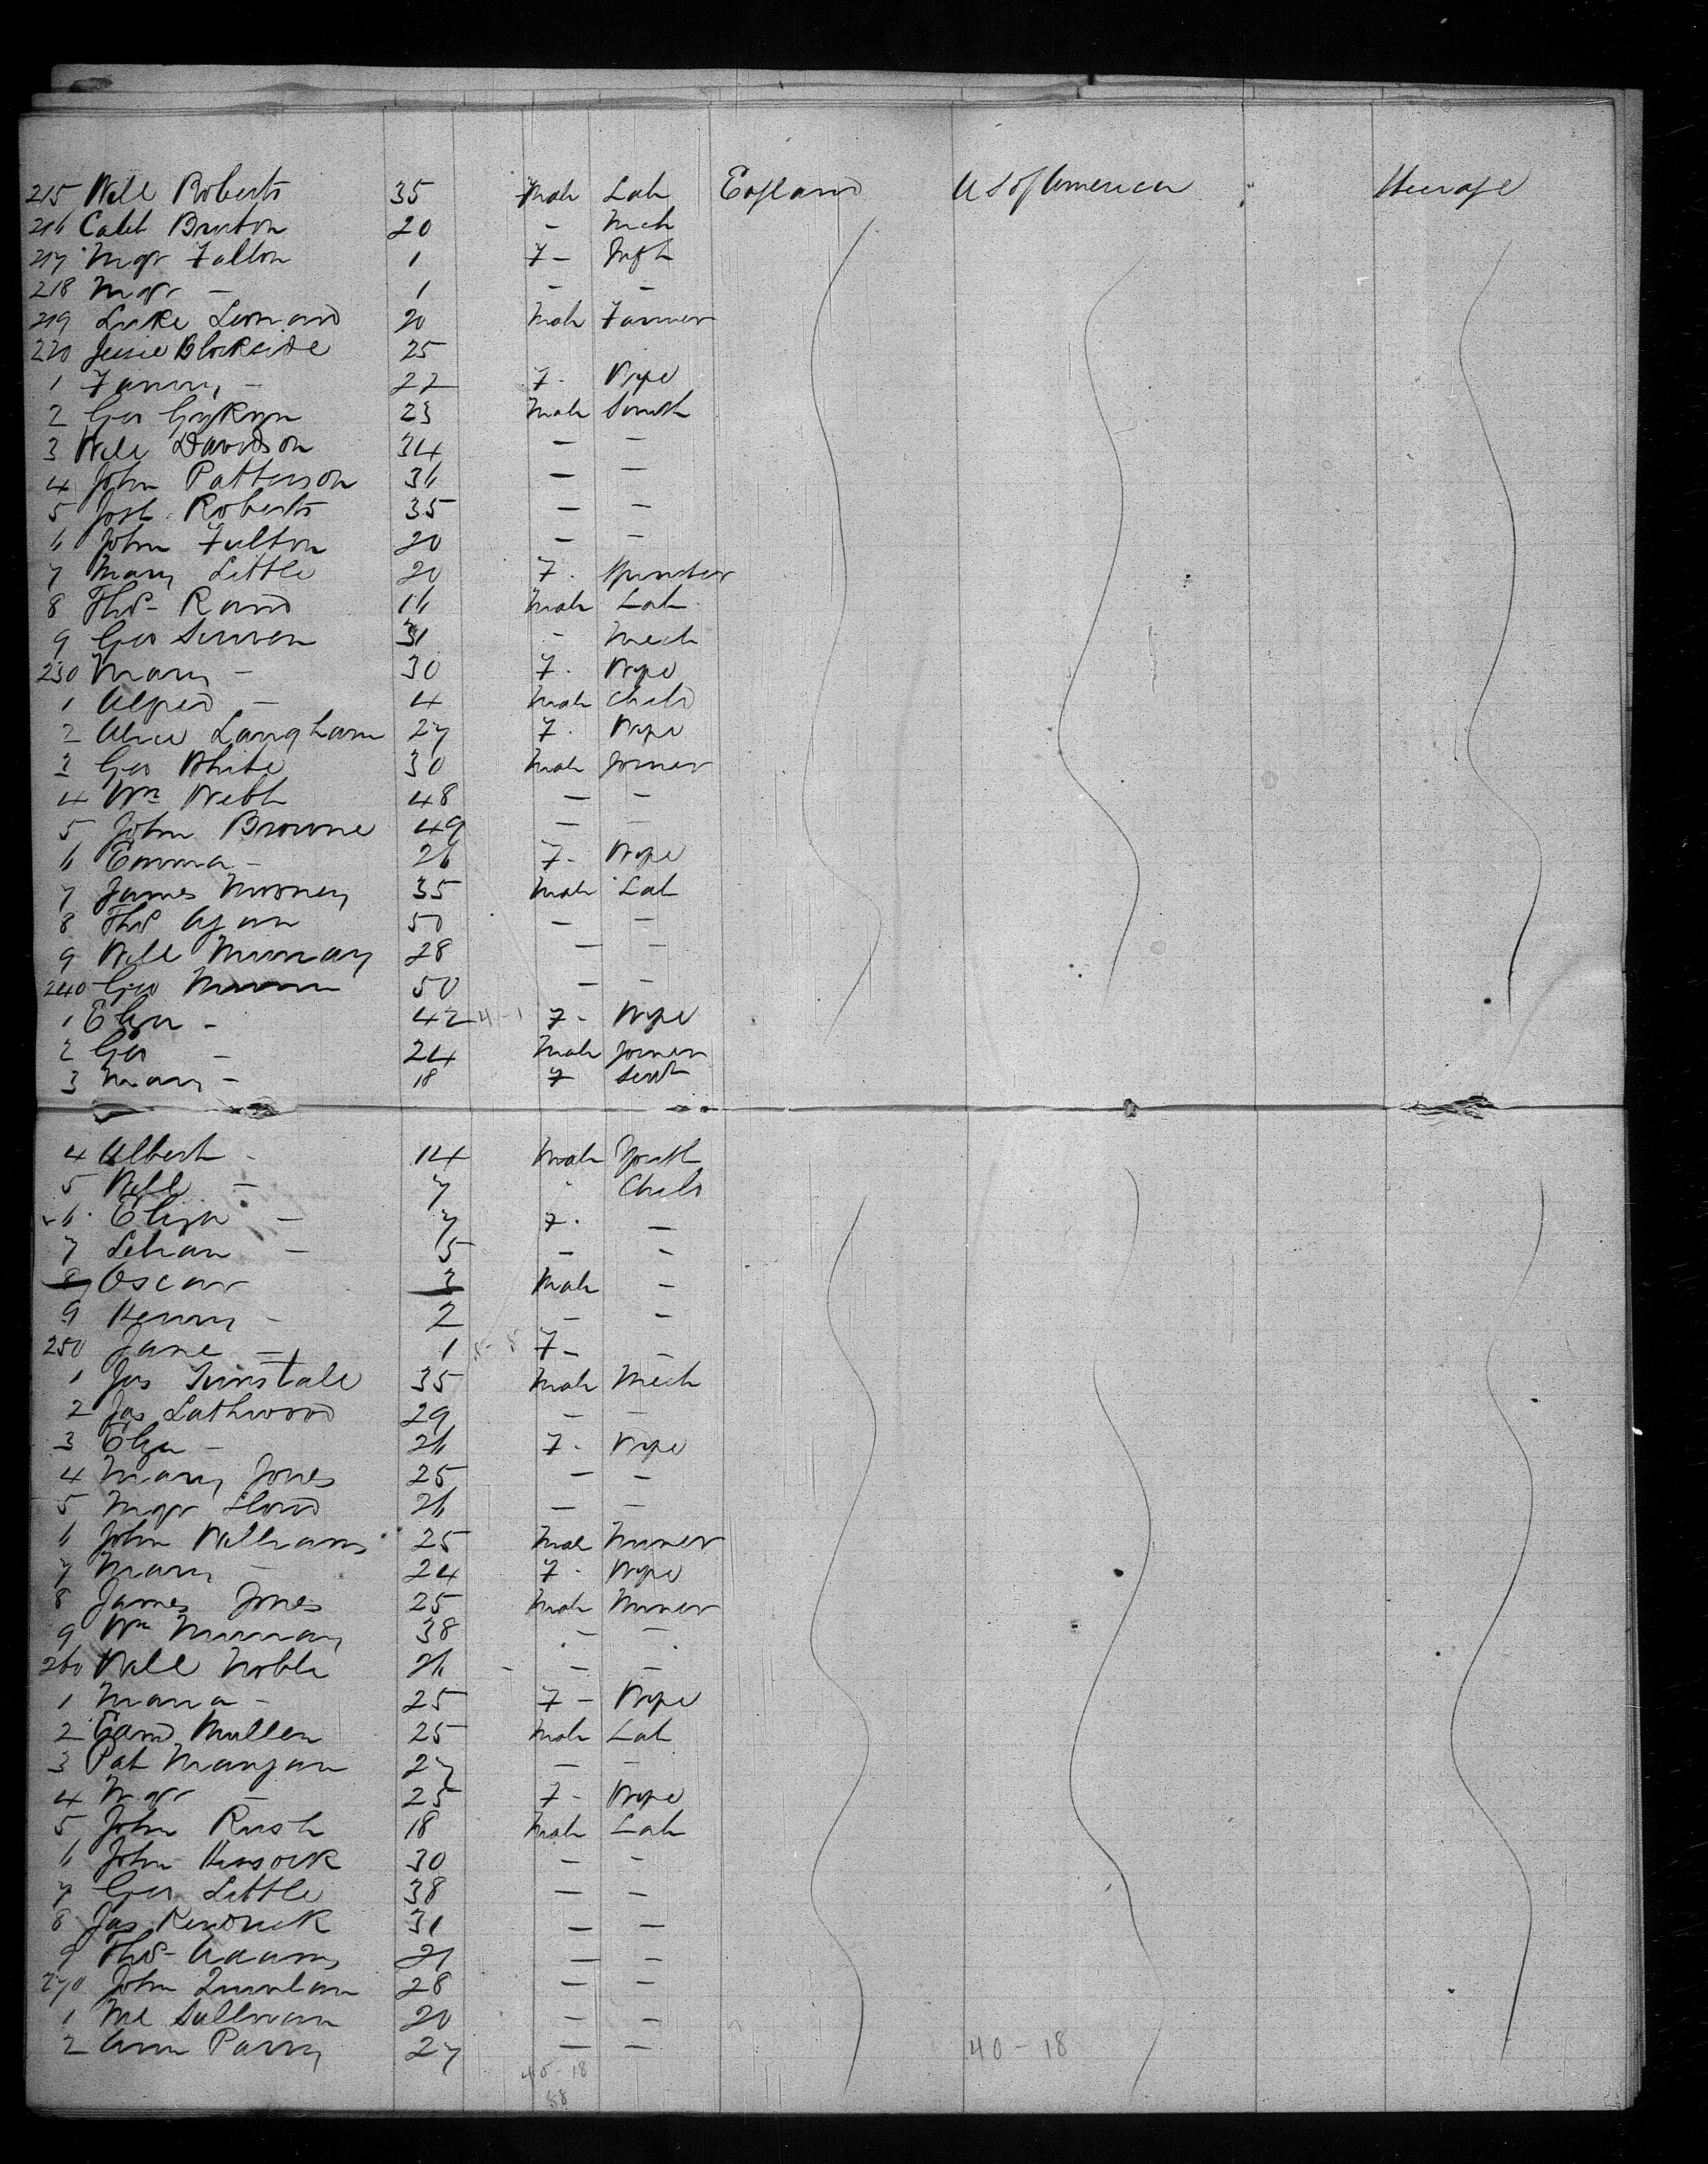 215 Will Roberts 35 Male Lab England U S of America Steerage
216 Caleb Bruton 20 - Mech
217 Mgr Fallon 1 F - Inft
218 Mgr - 1 - -
219 Luke Leonard 20 Male Farmer
220 Jessie Blokside 25
1 Fanny - 22 F. Wife
2 Geo 23 Male Smith
3 Will Davidson 34 - -
4 John Patterson 36 - -
5 Josh Roberts 35 - -
6 John Fulton 20 - -
7 Mary Little 20 F. Spinster
8 Thos Rand 16 Male Lab
9 Geo 31 - Mech
230 Mary - 30 F. Wife
1 Alfred - 4 Male Child
2 Alice Langham 27 F. Wife
3 Geo White 30 Male Joiner
4 Wm Webb 48 - -
5 John Browne 49 - -
6 Emma - 26 F - Wife
7 James Mooney 35 Male Lab
8 Thos 50 - -
9 Will Murray 28 - -
240 Geo 50 - -
1 Eliza - 42 4-1 F - Wife
2 Geo - 24 Male Joiner
3 Mary - 18 F Servt
4 Albert - 14 Male Youth
5 Will - 7 - Child
6 Eliza - 7 F. -
7 - 5 - -
8 Oscar 3 Male -
9 Henry - 2 - -
250 Jane - 1 5-5 F - -
1 Jas Tunstall 35 Male Mech
2 Jas Lathwood 29 - -
3 Eliza - 26 F - Wife
4 Mary Jones 25 - -
5 Mgr 26 - -
6 John Williams 25 Male Miner
7 Mary - 24 F - Wife
8 James Jones 25 Male Miner
9 Wm Murray 38 - -
260 Will Noble 26 - - -
1 Maria - 25 F - Wife
2 Edwd Mullen 25 Male Lab
3 Pat Mangan 27 - -
4 Mgr - 25 F - Wife
5 John Rush 18 Male Lab
6 John 30 - -
7 Geo Little 38 - -
8 Jas Kendrick 31 - -
9 Thos Adams 21 - -
270 John Quinlan 28 - -
1 Ml Sullivan 20 - -
2 Ann Parry 27 - - 40-18
45-18
88